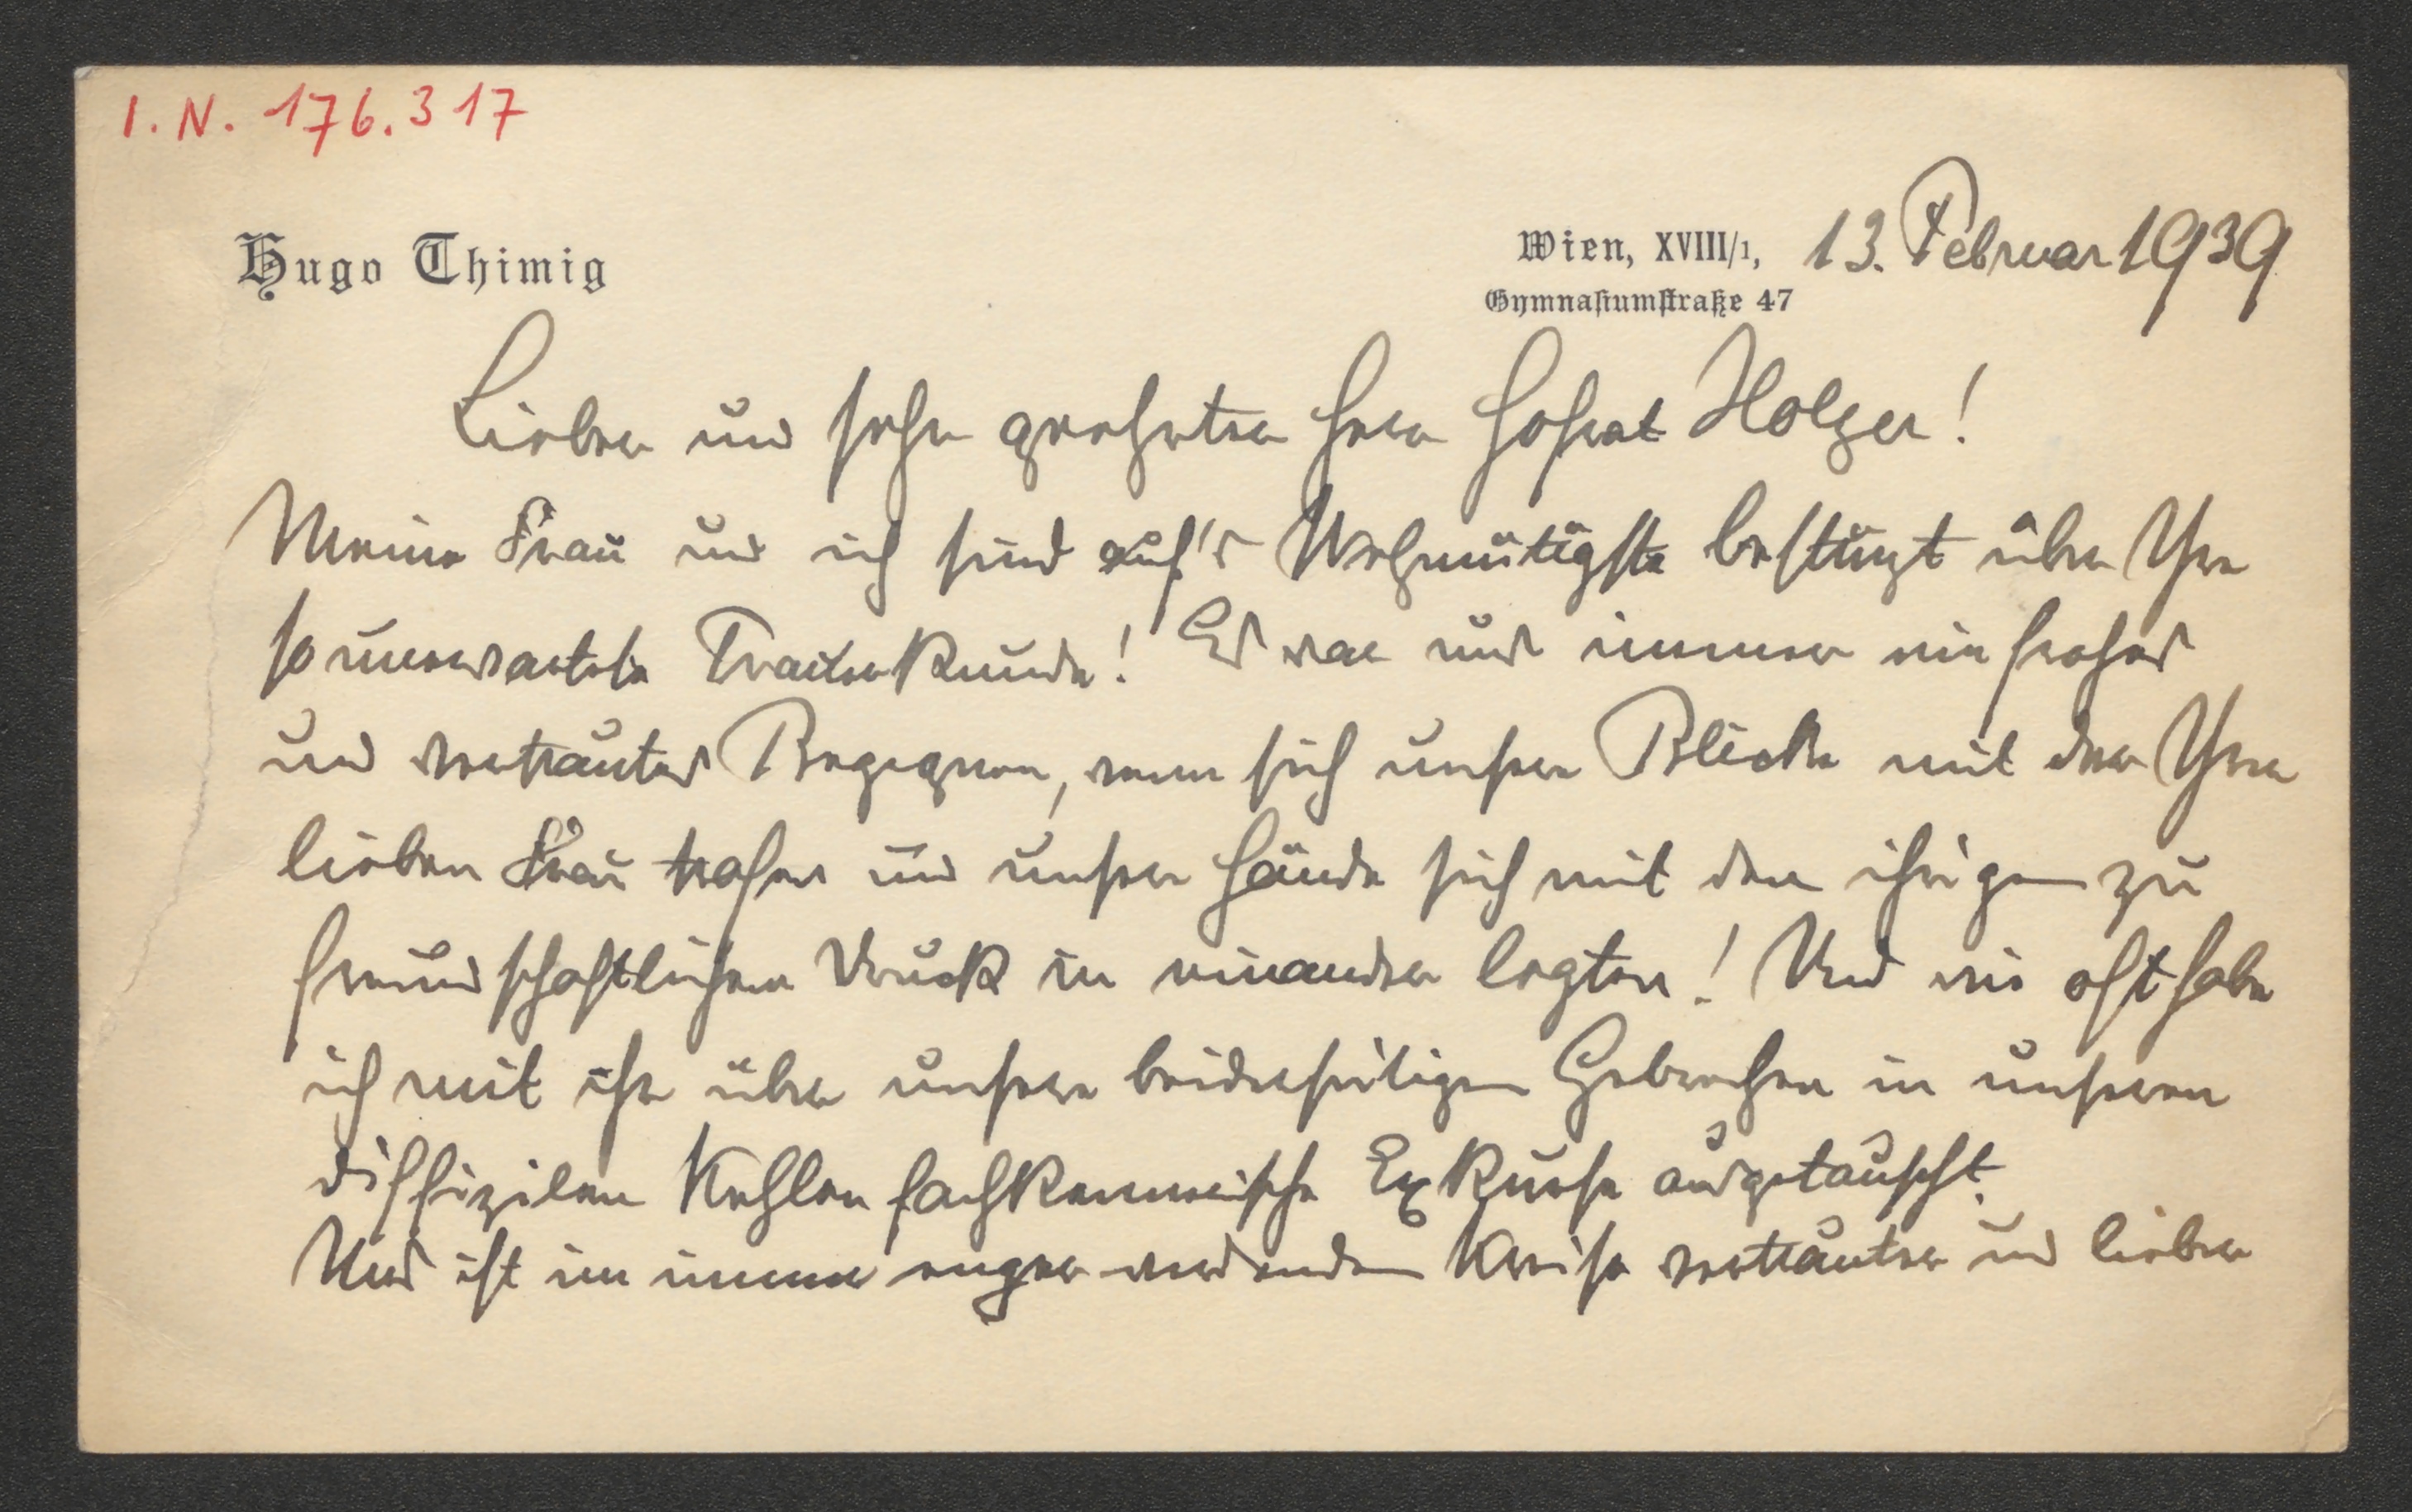 I. N. 176.317
Hugo Thimig
Wien, XVIII/1, 13. Februar 1939
Gymnasiumstraße 47
Lieber und sehr geehrter Herr Hofrat Holzer!
Meine Frau und ich sind auf's Wehmütigste bestürzt über Ihre
so unerwartete Trauerkunde! Es war uns immer ein frohes
und vertrautes Begegnen, wenn sich unsere Blicke mit denen Ihrer
lieben Frau trafen und unsere Hände sich mit den ihrigen zu
freundschaftlichem Druck in einander legten! Und wie oft habe
ich mit ihr über unsere beiderseitigen Gebrechen in unseren
diffizilen Kehlen fachkennerische Exkurse ausgetauscht.
Uns ist im immer enger werdenden Kreise vertrauter und lieber